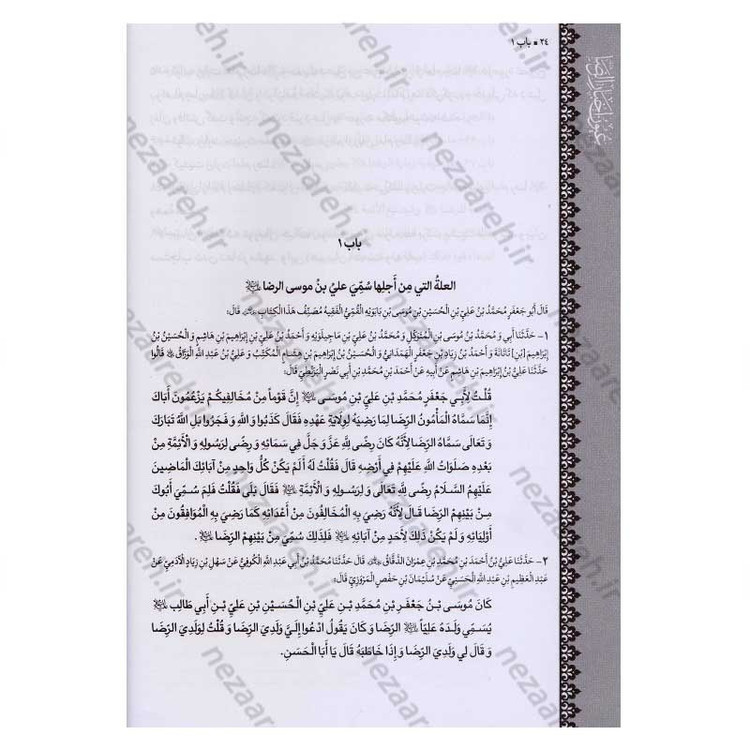 ٢٤ ▪ باب ١
عيون أخبار الرضا
باب ١
العلةُ التي مِن أَجلِها سُمِّيَ عليُّ بنُ موسى الرضا
قَالَ أَبُو جَعْفَرٍ مُحَمَّدُ بْنُ عَلِيِّ بْنِ الْحُسَيْنِ بْنِ مُوسَى بْنِ بَابَوَيْهِ الْقُمِّيُّ الْفَقِيهُ مُصَنِّفُ هَذَا الْكِتَابِ قَالَ:
١- حَدَّثَنَا أَبِي وَ مُحَمَّدُ بْنُ مُوسَى بْنِ الْمُتَوَكِّلِ وَ مُحَمَّدُ بْنُ عَلِيٍّ مَاجِيلَوَيْهِ وَ أَحْمَدُ بْنُ عَلِيِّ بْنِ إِبْرَاهِيمَ بْنِ هَاشِمٍ وَ الْحُسَيْنُ بْنُ
إِبْرَاهِيمَ [بْنِ] نَاتَانَةَ وَ أَحْمَدُ بْنُ زِيَادِ بْنِ جَعْفَرٍ الْهَمَدَانِيُّ وَ الْحُسَيْنُ بْنُ إِبْرَاهِيمَ بْنِ هِشَامٍ الْمُكَتِّبُ وَ عَلِيُّ بْنُ عَبْدِ اللَّهِ الْوَرَّاقُ قَالُوا
حَدَّثَنَا عَلِيُّ بْنُ إِبْرَاهِيمَ بْنِ هَاشِمٍ عَنْ أَبِيهِ عَنْ أَحْمَدَ بْنِ مُحَمَّدِ بْنِ أَبِي نَصْرٍ الْبَزَنْطِيِّ قَالَ:
قُلْتُ لِأَبِي جَعْفَرٍ مُحَمَّدِ بْنِ عَلِيِّ بْنِ مُوسَى إِنَّ قَوْماً مِنْ مُخَالِفِيكُمْ يَزْعُمُونَ أَبَاكَ
إِنَّمَا سَمَّاهُ الْمَأْمُونُ الرِّضَا لِمَا رَضِيَهُ لِوِلَايَةِ عَهْدِهِ فَقَالَ كَذَبُوا وَ اللَّهِ وَ فَجَرُوا بَلِ اللَّهُ تَبَارَكَ
وَ تَعَالَى سَمَّاهُ الرِّضَا لِأَنَّهُ كَانَ رِضًى لِلَّهِ عَزَّ وَ جَلَّ فِي سَمَائِهِ وَ رِضًى لِرَسُولِهِ وَ الْأَئِمَّةِ مِنْ
بَعْدِهِ صَلَوَاتُ اللَّهِ عَلَيْهِمْ فِي أَرْضِهِ قَالَ فَقُلْتُ لَهُ أَلَمْ يَكُنْ كُلُّ وَاحِدٍ مِنْ آبَائِكَ الْمَاضِينَ
عَلَيْهِمُ السَّلَامُ رِضًى لِلَّهِ تَعَالَى وَ لِرَسُولِهِ وَ الْأَئِمَّةِ فَقَالَ بَلَى فَقُلْتُ فَلِمَ سُمِّيَ أَبُوكَ
مِنْ بَيْنِهِمُ الرِّضَا قَالَ لِأَنَّهُ رَضِيَ بِهِ الْمُخَالِفُونَ مِنْ أَعْدَائِهِ كَمَا رَضِيَ بِهِ الْمُوَافِقُونَ مِنْ
أَوْلِيَائِهِ وَ لَمْ يَكُنْ ذَلِكَ لِأَحَدٍ مِنْ آبَائِهِ فَلِذَلِكَ سُمِّيَ مِنْ بَيْنِهِمُ الرِّضَا .
٢- حَدَّثَنَا عَلِيُّ بْنُ أَحْمَدَ بْنِ مُحَمَّدِ بْنِ عِمْرَانَ الدَّقَّاقُ قَالَ حَدَّثَنَا مُحَمَّدُ بْنُ أَبِي عَبْدِ اللَّهِ الْكُوفِيُّ عَنْ سَهْلِ بْنِ زِيَادٍ الْآدَمِيِّ عَنْ
عَبْدِ الْعَظِيمِ بْنِ عَبْدِ اللَّهِ الْحَسَنِيِّ عَنْ سُلَيْمَانَ بْنِ حَفْصٍ الْمَرْوَزِيِّ قَالَ:
كَانَ مُوسَى بْنُ جَعْفَرِ بْنِ مُحَمَّدِ بْنِ عَلِيِّ بْنِ الْحُسَيْنِ بْنِ عَلِيِّ بْنِ أَبِي طَالِبٍ
يُسَمِّي وَلَدَهُ عَلِيّاً الرِّضَا وَ كَانَ يَقُولُ ادْعُوا إِلَيَّ وَلَدِيَ الرِّضَا وَ قُلْتُ لِوَلَدِيَ الرِّضَا
وَ قَالَ لِي وَلَدِيَ الرِّضَا وَ إِذَا خَاطَبَهُ قَالَ يَا أَبَا الْحَسَنِ.
nezaareh.ir